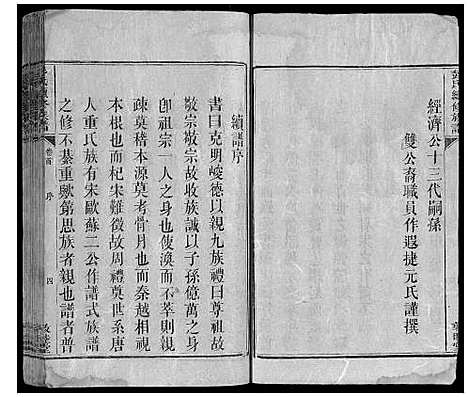 經濟公十三代嗣孫
雙公裔職員作遐捷元氏謹撰
續譜序
書曰克明峻德以親九族禮曰尊祖故
敬宗敬宗故收族誠以子孫億萬之身
卽祖宗一人之身也使渙而不萃則親
疎莫稽本源莫考骨月也而秦越相視
本支也而杞宋難徵故周禮奠世系唐
人重氏族有宋歐蘇二公作譜式族譜
之修不綦重歟第思族者親也譜者普
卷首
序
四